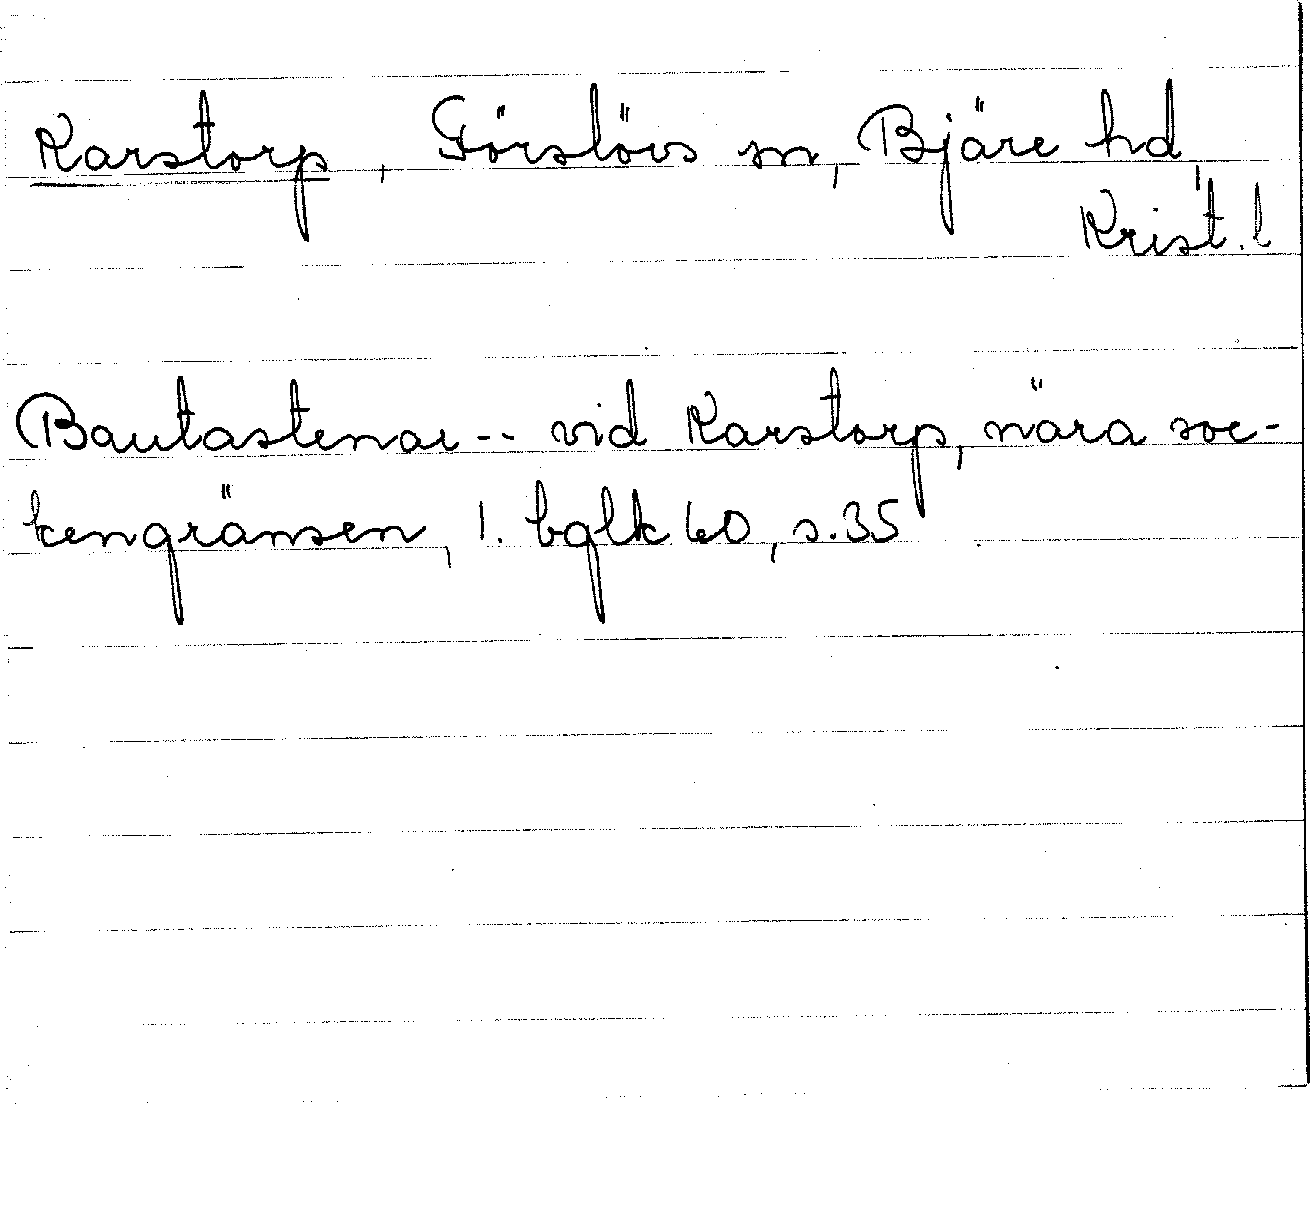 Karstorp, Förslövs sn, Bjäre hd,
Krist. l
Bautastenar -- vid Karstorp, nära soc-
kengränsen, 1. bglk 60, s. 35